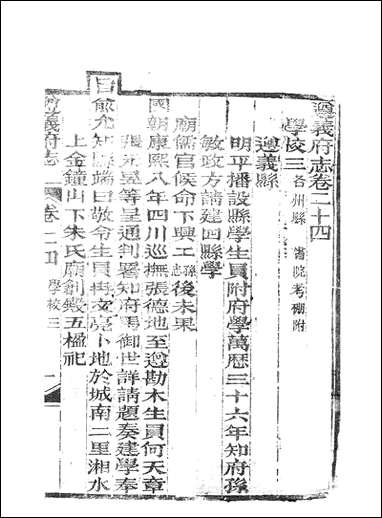 遵義府志卷二十四
學校三 各州縣 書院考棚附
遵義縣
明平播設縣學生員附府學萬歷三十六年知府孫
敏政方請建回縣學
廟儒官候命下興工孫志後未果
國朝康熙八年四川巡撫張德地至遵勘木生員何天章
張 等呈通判署知府馬御世詳請題奏建學奉
旨俞允知縣端曰敬令生員 文亮卜地於城南二里湘水
上金鐘山下朱氏廟創殿五楹祀
遵義府志 卷二四 學校三 一